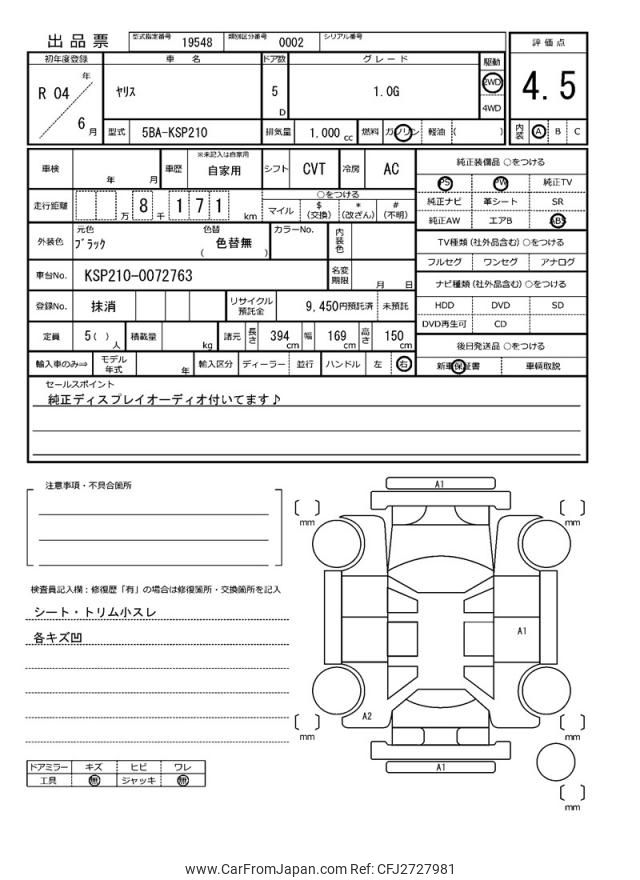 出品票 型式指定番号 19548 類別区分番号 0002 シリアル番号
初年度登録 車名 ドア数 グレード 駆動 評価点
R 04 年 6 月 ヤリス 5 D 1.0G 2WD 4WD 4.5
型式 5BA-KSP210 排気量 1.000 cc 燃料 ガソリン 軽油 ( ) 内装 A B C
車検 年 月 車歴 ※未記入は自家用 自家用 シフト CVT 冷房 AC
純正装備品 ○をつける
PS PW 純正TV
純正ナビ 革シート SR
純正AW エアB ABS
走行距離 万 8 千 1 7 1 km
○をつける
マイル $(交換) *(改ざん) #(不明)
外装色 元色 ブラック 色替 色替無 ( ) カラーNo. 内装色
TV種類(社外品含む)○をつける
フルセグ ワンセグ アナログ
車台No. KSP210-0072763 名変期限 月 日
ナビ種類(社外品含む)○をつける
HDD DVD SD
DVD再生可 CD
登録No. 抹消 リサイクル預託金 9,450円預託済 未預託
定員 5( ) 人 積載量 kg 諸元 長さ 394 cm 幅 169 cm 高さ 150 cm
後日発送品 ○をつける
新車保証書 車輌取説
輸入車のみ⇒ モデル年式 年 輸入区分 ディーラー 並行 ハンドル 左 右
セールスポイント
純正ディスプレイオーディオ付いてます♪
注意事項・不具合箇所
検査員記入欄:修復歴「有」の場合は修復箇所・交換箇所を記入
シート・トリム小スレ
各キズ凹
A1
mm
mm
A1
A2
mm
mm
A1
mm
ドアミラー キズ ヒビ ワレ
工具 無 ジャッキ 無
www.CarFromJapan.com Ref: CFJ2727981